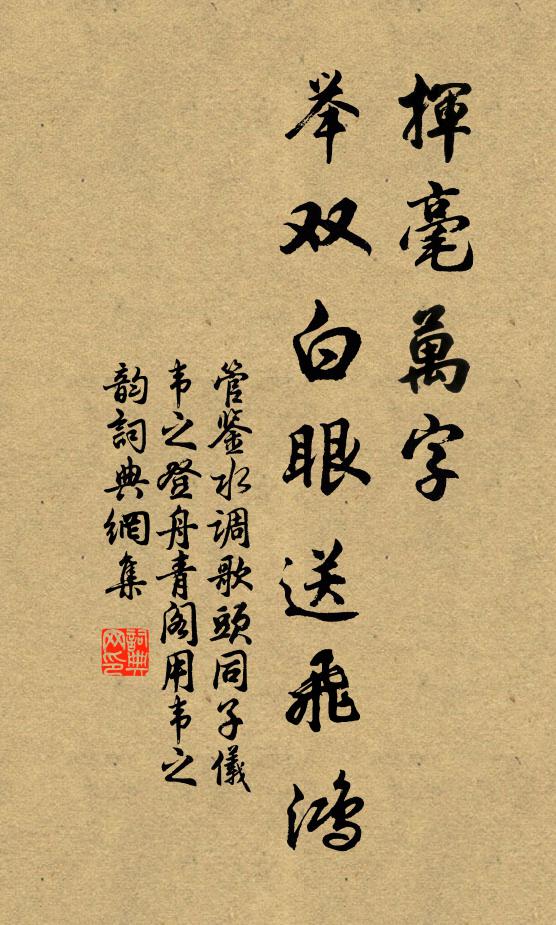 揮毫萬字
举双白眼送飛鴻
管鉴水调歌頭同子儀
韦之登舟青阁用韦之
韵詞典網集
詞典網印